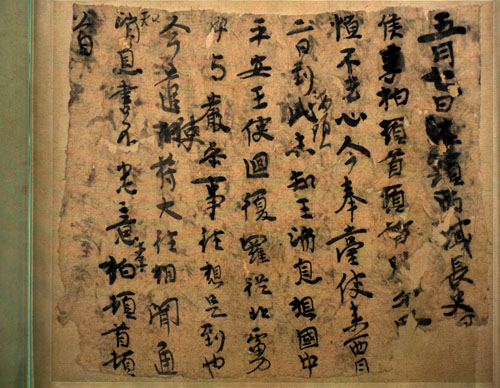 五月七日海頭西域長史
侯李柏頓首頓首別
恒不去心今奉臺使來西月
二日到此海頭未知王消息想國中
平安王使迴復羅從北虜
中與嚴參事往想是到也
今遣使符大往相聞通
知消息書不悉意李柏頓首頓
首